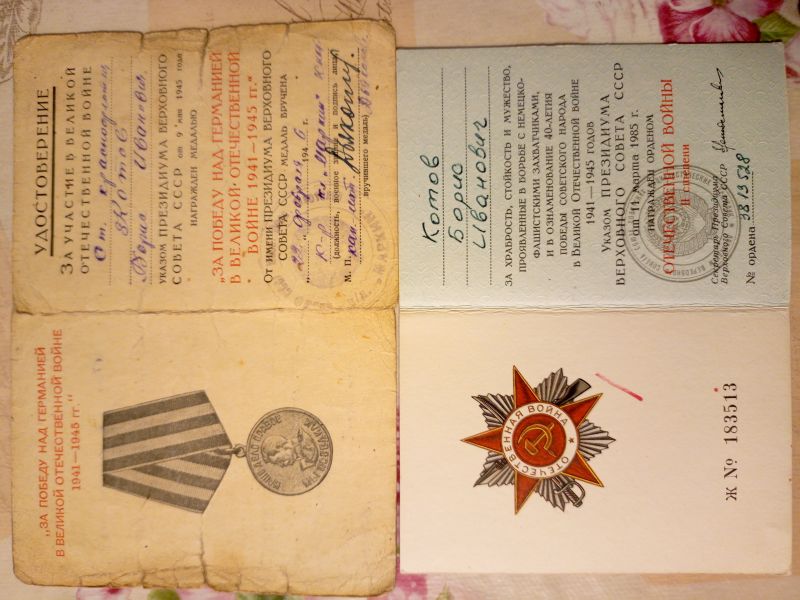 УДОСТОВЕРЕНИЕ
ЗА УЧАСТИЕ В ВЕЛИКОЙ
ОТЕЧЕСТВЕННОЙ ВОЙНЕ
Ст. краснофлотец
Котов
Борис Иванович
УКАЗОМ ПРЕЗИДИУМА ВЕРХОВНОГО
СОВЕТА СССР от 9 мая 1945 года
НАГРАЖДЕН МЕДАЛЬЮ
„ЗА ПОБЕДУ НАД ГЕРМАНИЕЙ
В ВЕЛИКОЙ ОТЕЧЕСТВЕННОЙ
ВОЙНЕ 1941—1945 гг."
ОТ ИМЕНИ ПРЕЗИДИУМА ВЕРХОВНОГО
СОВЕТА СССР МЕДАЛЬ ВРУЧЕНА
февраля 1946 г.
(должность, военное звание и подпись лица,
М. П.
вручившего медаль)
„ЗА ПОБЕДУ НАД ГЕРМАНИЕЙ
В ВЕЛИКОЙ ОТЕЧЕСТВЕННОЙ ВОЙНЕ
1941—1945 гг."
НАШЕ ДЕЛО ПРАВОЕ
МЫ ПОБЕДИЛИ
Котов
Борис
Иванович
ЗА ХРАБРОСТЬ, СТОЙКОСТЬ И МУЖЕСТВО,
ПРОЯВЛЕННЫЕ В БОРЬБЕ С НЕМЕЦКО-
ФАШИСТСКИМИ ЗАХВАТЧИКАМИ,
И В ОЗНАМЕНОВАНИЕ 40-ЛЕТИЯ
ПОБЕДЫ СОВЕТСКОГО НАРОДА
В ВЕЛИКОЙ ОТЕЧЕСТВЕННОЙ ВОЙНЕ
1941—1945 ГОДОВ
УКАЗОМ ПРЕЗИДИУМА
ВЕРХОВНОГО СОВЕТА СССР
от 11 марта 1985 г.
НАГРАЖДЕН ОРДЕНОМ
ОТЕЧЕСТВЕННОЙ ВОЙНЫ
II степени
Секретарь Президиума
Верховного Совета СССР
№ ордена 3813528
ОТЕЧЕСТВЕННАЯ ВОЙНА
Ж № 183513